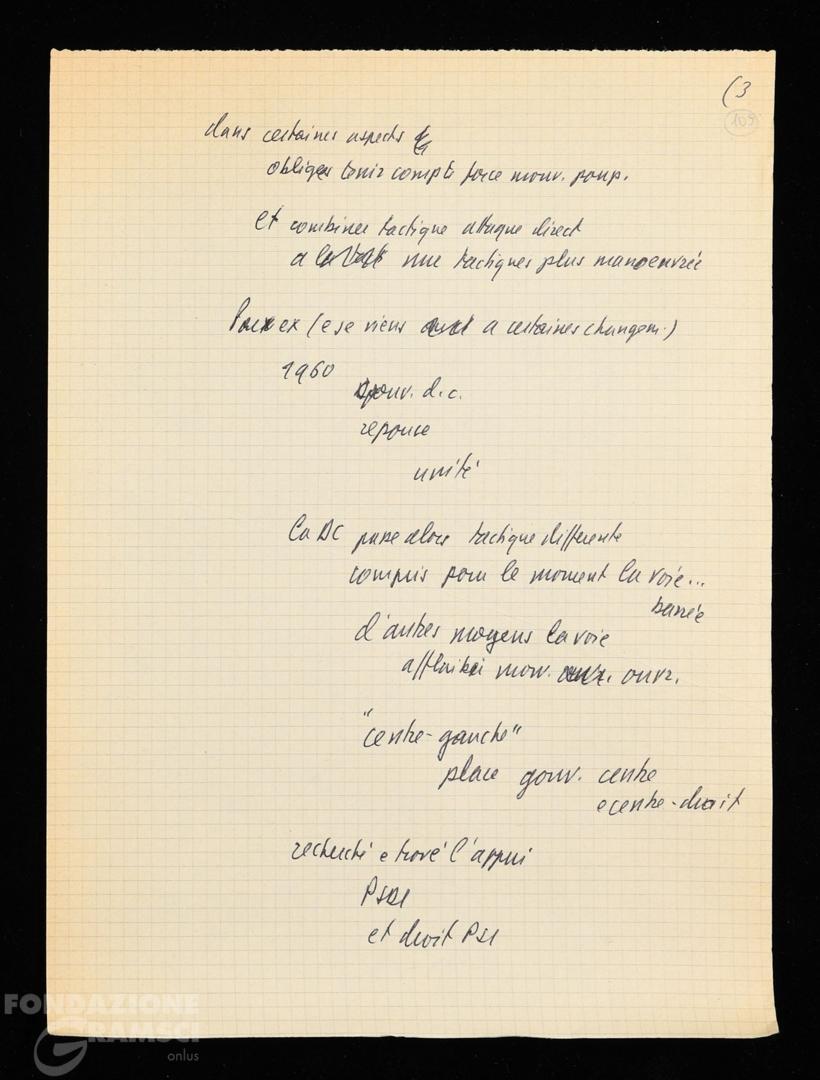 (3
109
dans certaines aspects
obliger tenir compte force mouv. poup.
et combiner tactique attaque direct
a une tactiques plus manoeuvrée
ex (e se viens a certaines changem.)
1960
gouv. d.c.
reponce
unité
La DC passe alors tactique differente
compris pour le moment la voie...
barrée
d'autres moyens la voie
affaibli mouv. ouvr.
"centre-gauche"
place gouv. centre
e centre-droit
recherché e trové l'appui
PSDI
et droit PSI
FONDAZIONE
GRAMSCI
onlus